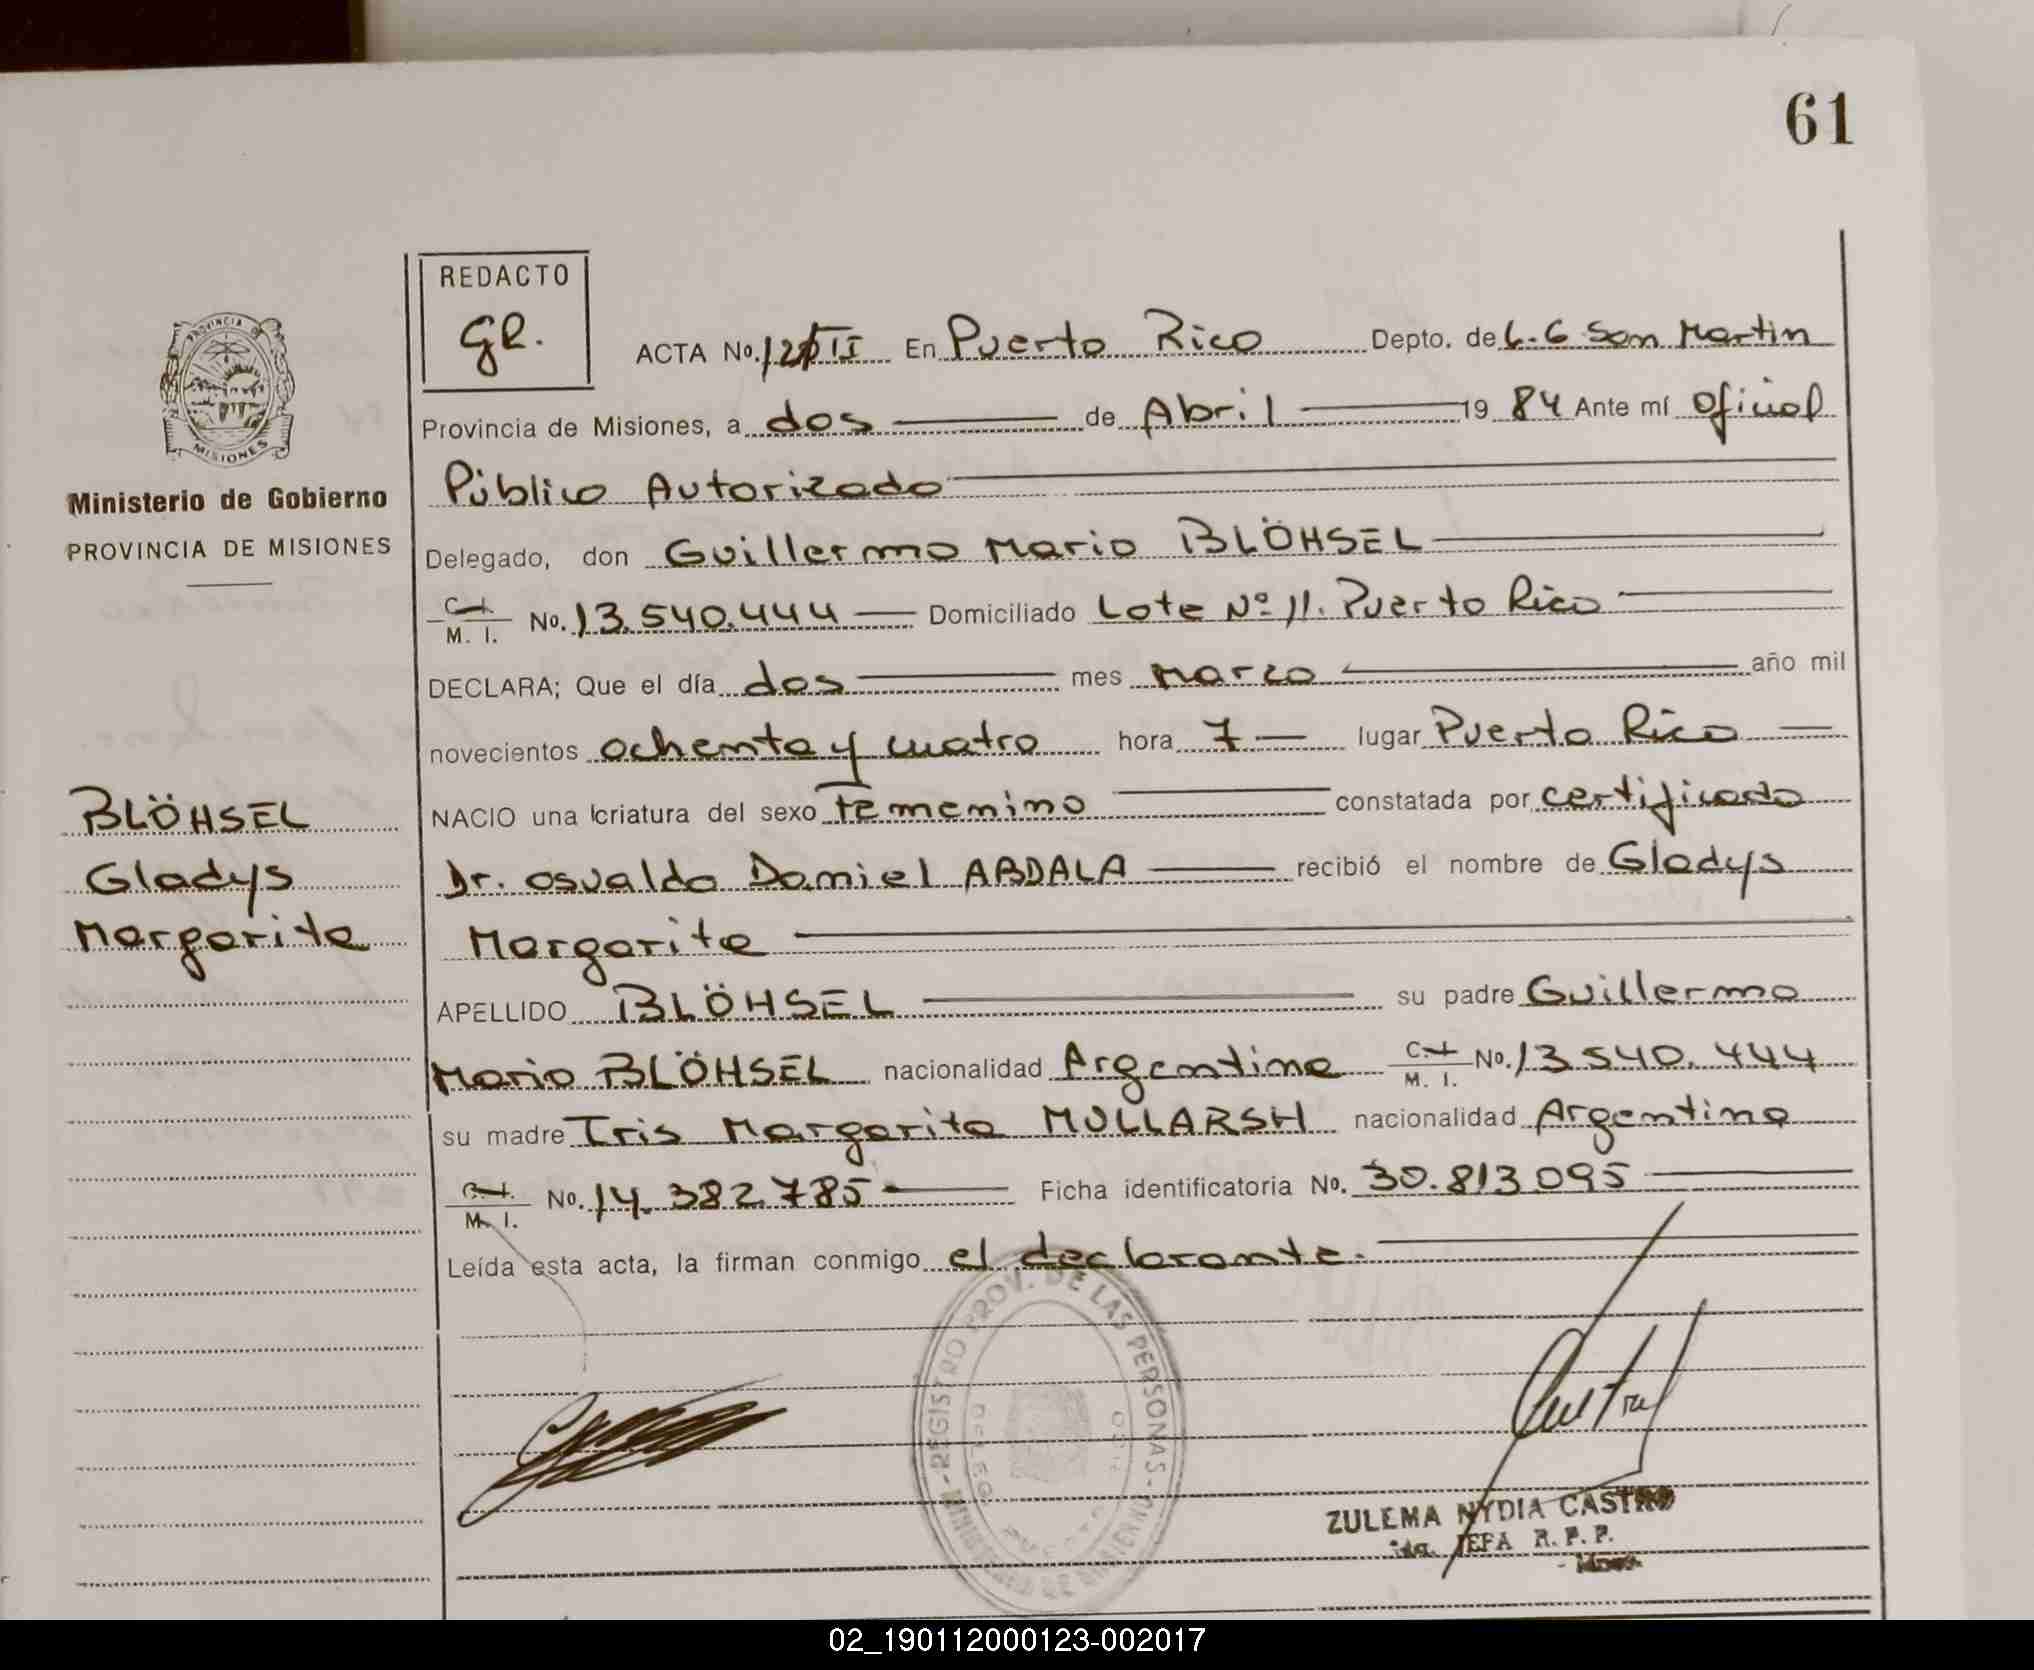 61
REDACTO
GR.
ACTA No. En Puerto Rico Depto. de L. G. San Martin
Provincia de Misiones, a dos de Abril 19 84 Ante mí Oficial
Público Autorizado
PROVINCIA DE
MISIONES
Ministerio de Gobierno
PROVINCIA DE MISIONES
Delegado, don Guillermo Mario BLÖHSEL
C. I.
M. I. No. 13.540.444 Domiciliado Lote Nº 11. Puerto Rico
DECLARA; Que el día dos mes marzo año mil
novecientos ochenta y cuatro hora 7 lugar Puerto Rico
NACIO una criatura del sexo Femenino constatada por certificado
Dr. Osvaldo Daniel ABDALA recibió el nombre de Gladys
Margarita
BLÖHSEL
Gladys
Margarita
APELLIDO BLÖHSEL su padre Guillermo
Mario BLÖHSEL nacionalidad Argentina C. I.
M. I. No. 13.540.444
su madre Iris Margarita MULLARSH nacionalidad Argentina
C. I.
M. I. No. 14.382.785 Ficha identificatoria No. 30.813.095
Leída esta acta, la firman conmigo el declarante.
REGISTRO PROV. DE LAS PERSONAS
ZULEMA NYDIA CASTRO
JEFA R. P. P.
02_190112000123-002017